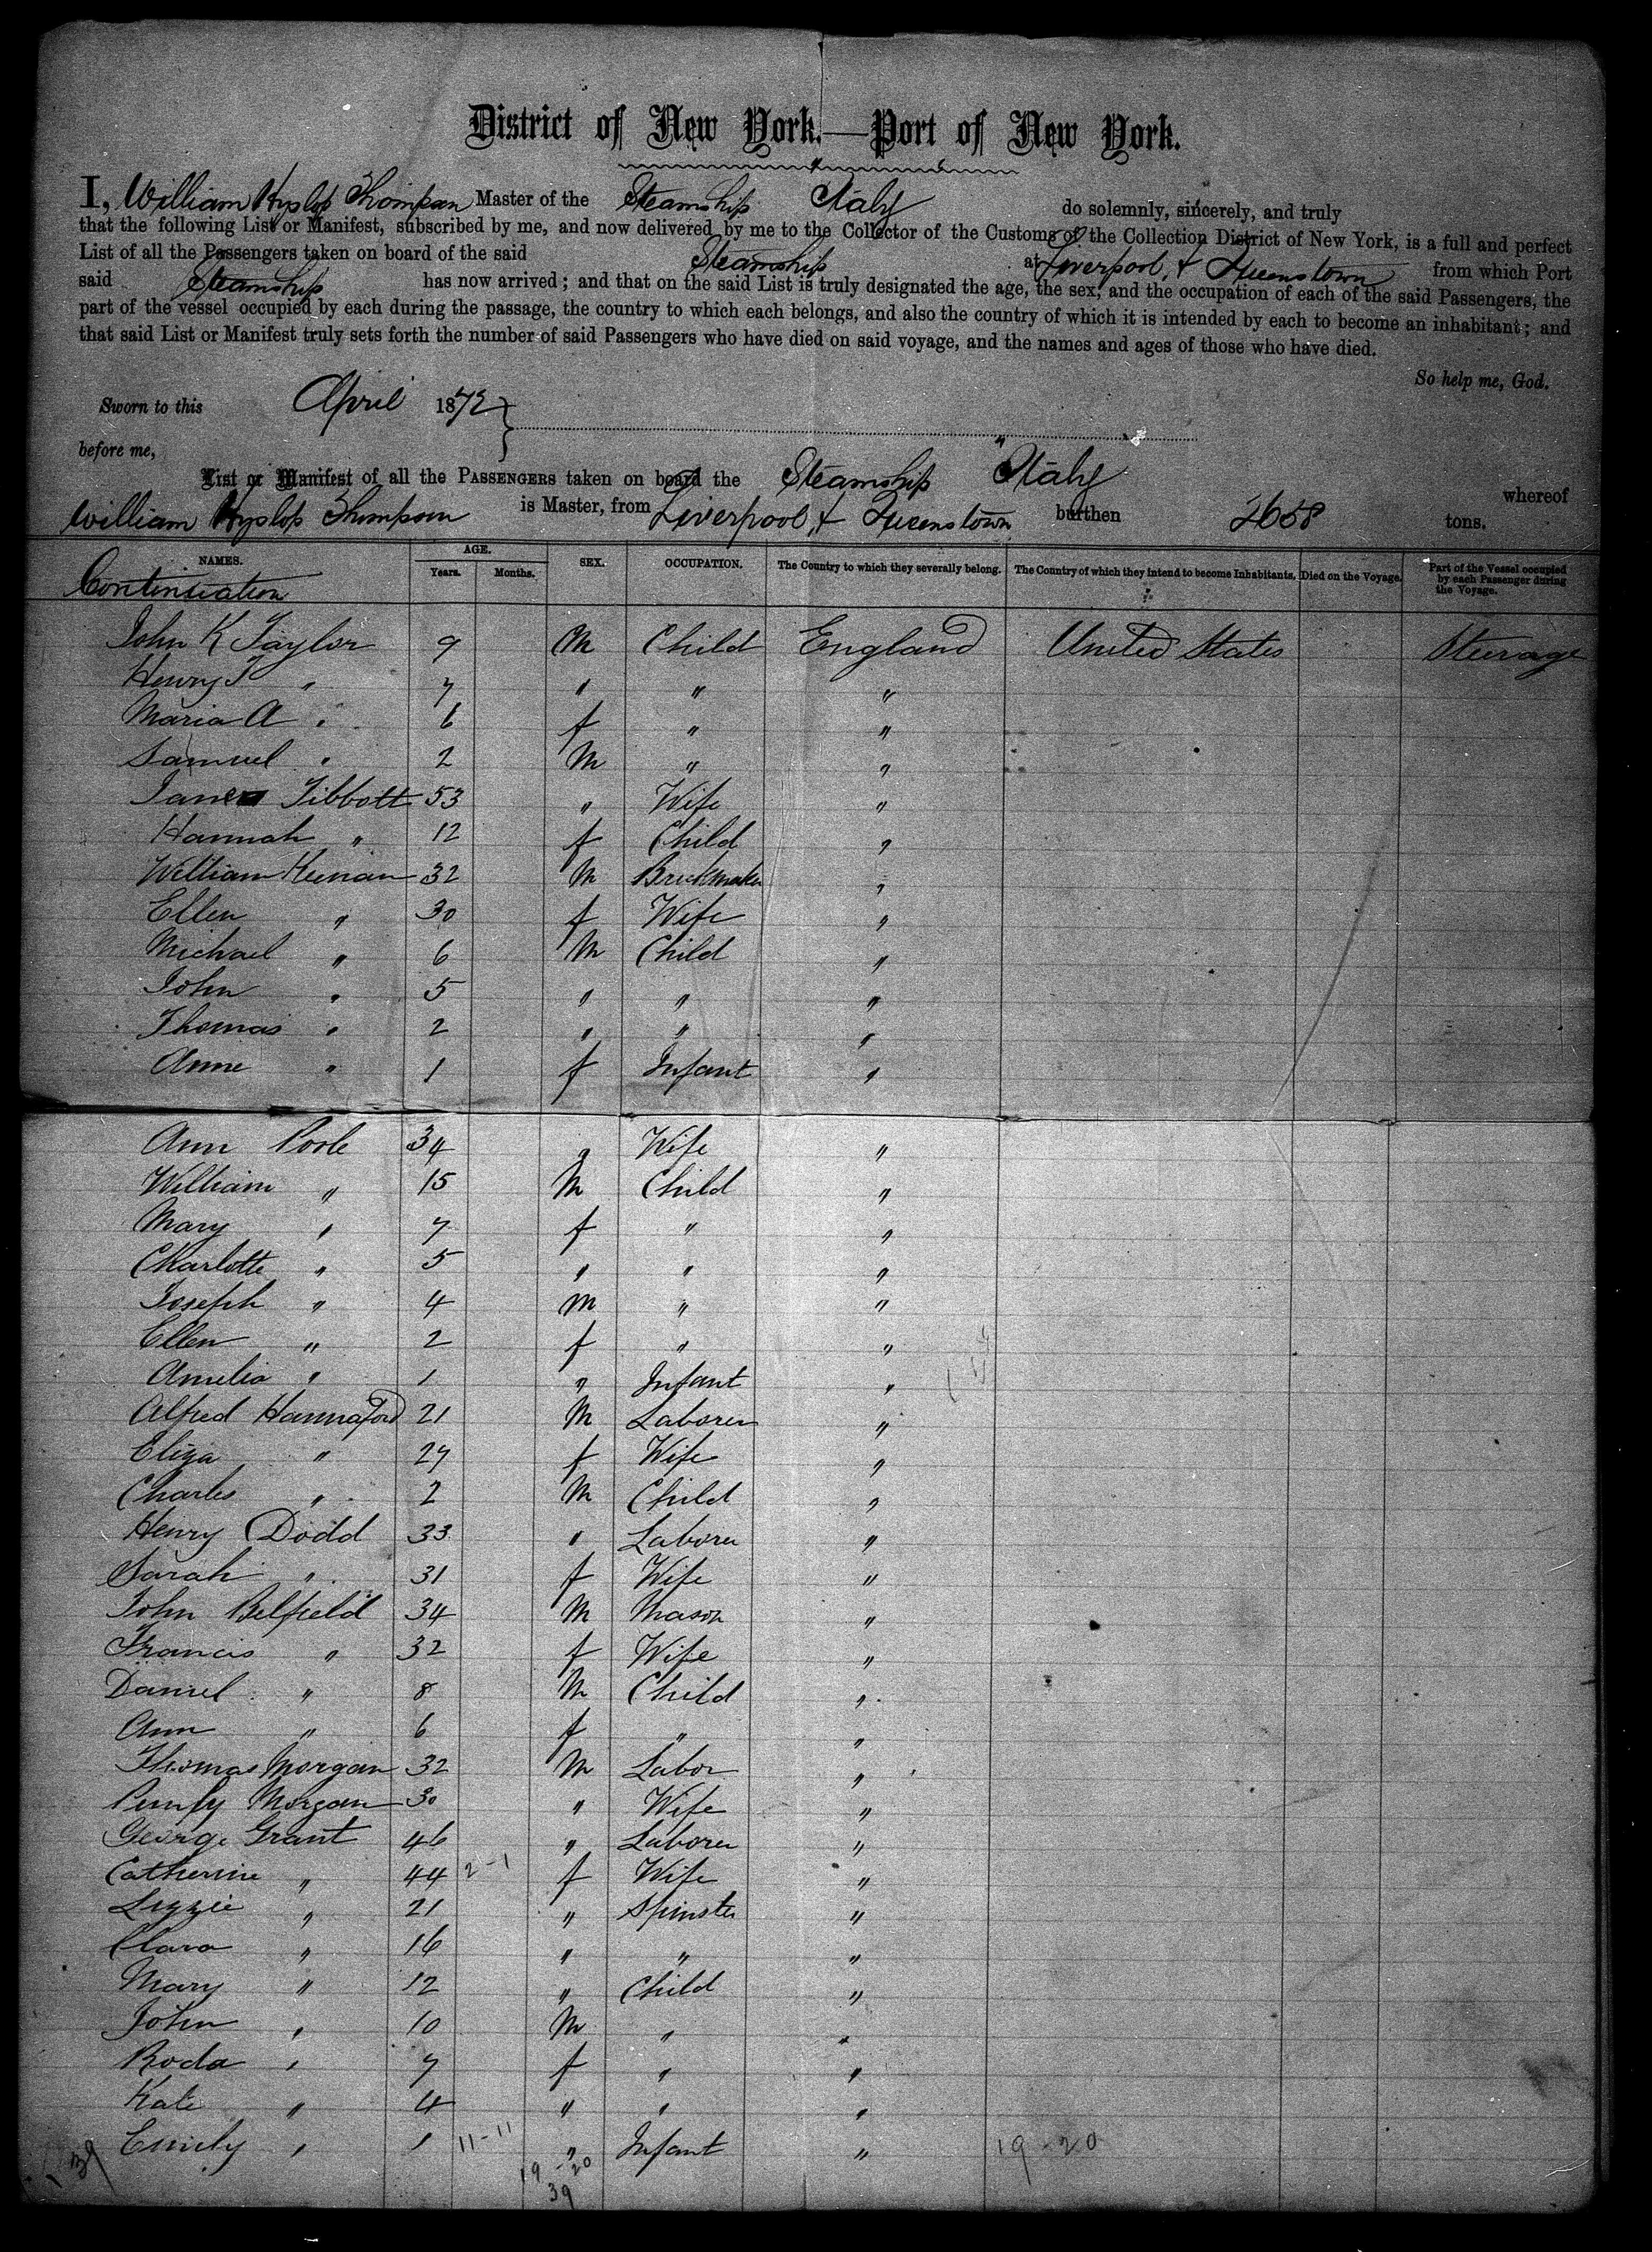 District of New York.—Port of New York.
I, William Hyslop Thompson Master of the Steamship Italy do solemnly, sincerely, and truly
that the following List or Manifest, subscribed by me, and now delivered by me to the Collector of the Customs of the Collection District of New York, is a full and perfect
List of all the Passengers taken on board of the said Steamship at Liverpool, & Queenstown from which Port
said Steamship has now arrived; and that on the said List is truly designated the age, the sex, and the occupation of each of the said Passengers, the
part of the vessel occupied by each during the passage, the country to which each belongs, and also the country of which it is intended by each to become an inhabitant; and
that said List or Manifest truly sets forth the number of said Passengers who have died on said voyage, and the names and ages of those who have died.
So help me, God.
Sworn to this April 1872
before me,
List or Manifest of all the PASSENGERS taken on board the Steamship Italy whereof
William Hyslop Thompson is Master, from Liverpool, & Queenstown burthen 2658 tons.
NAMES. AGE. SEX. OCCUPATION. The Country to which they severally belong. The Country of which they intend to become Inhabitants. Died on the Voyage. Part of the Vessel occupied by each Passenger during the Voyage.
Years. Months.
Continuation
John K Taylor 9 M Child England United States Steerage
Henry T " 7 " " "
Maria A " 6 f " "
Samuel " 2 M " "
Jane Tibbott 53 " Wife "
Hannah " 12 f Child "
William Keenan 32 M Brickmaker "
Ellen " 30 f Wife "
Michael " 6 M Child "
John " 5 " " "
Thomas " 2 " " "
Anne " 1 f Infant "
Ann Poole 34 " Wife "
William " 15 M Child "
Mary " 7 f " "
Charlotte " 5 " " "
Joseph " 4 M " "
Ellen " 2 f " "
Amelia " 1 " Infant "
Alfred Hannaford 21 M Laborer "
Eliza " 27 f Wife "
Charles " 2 M Child "
Henry Dodd 33 " Laborer "
Sarah " 31 f Wife "
John Belfield 34 M Mason "
Francis " 32 f Wife "
Daniel " 8 M Child "
Ann " 6 f " "
Thomas Morgan 32 M Labor "
Morgan 30 " Wife "
George Grant 46 " Laborer "
Catherine " 44 2-1 f Wife "
Lizzie " 21 " Spinster "
Clara " 16 " " "
Mary " 12 " Child "
John " 10 M " "
Roda " 7 f " "
Kate " 4 " " "
Emily " 1 11-11 " Infant " 19-20
39 19-20
39